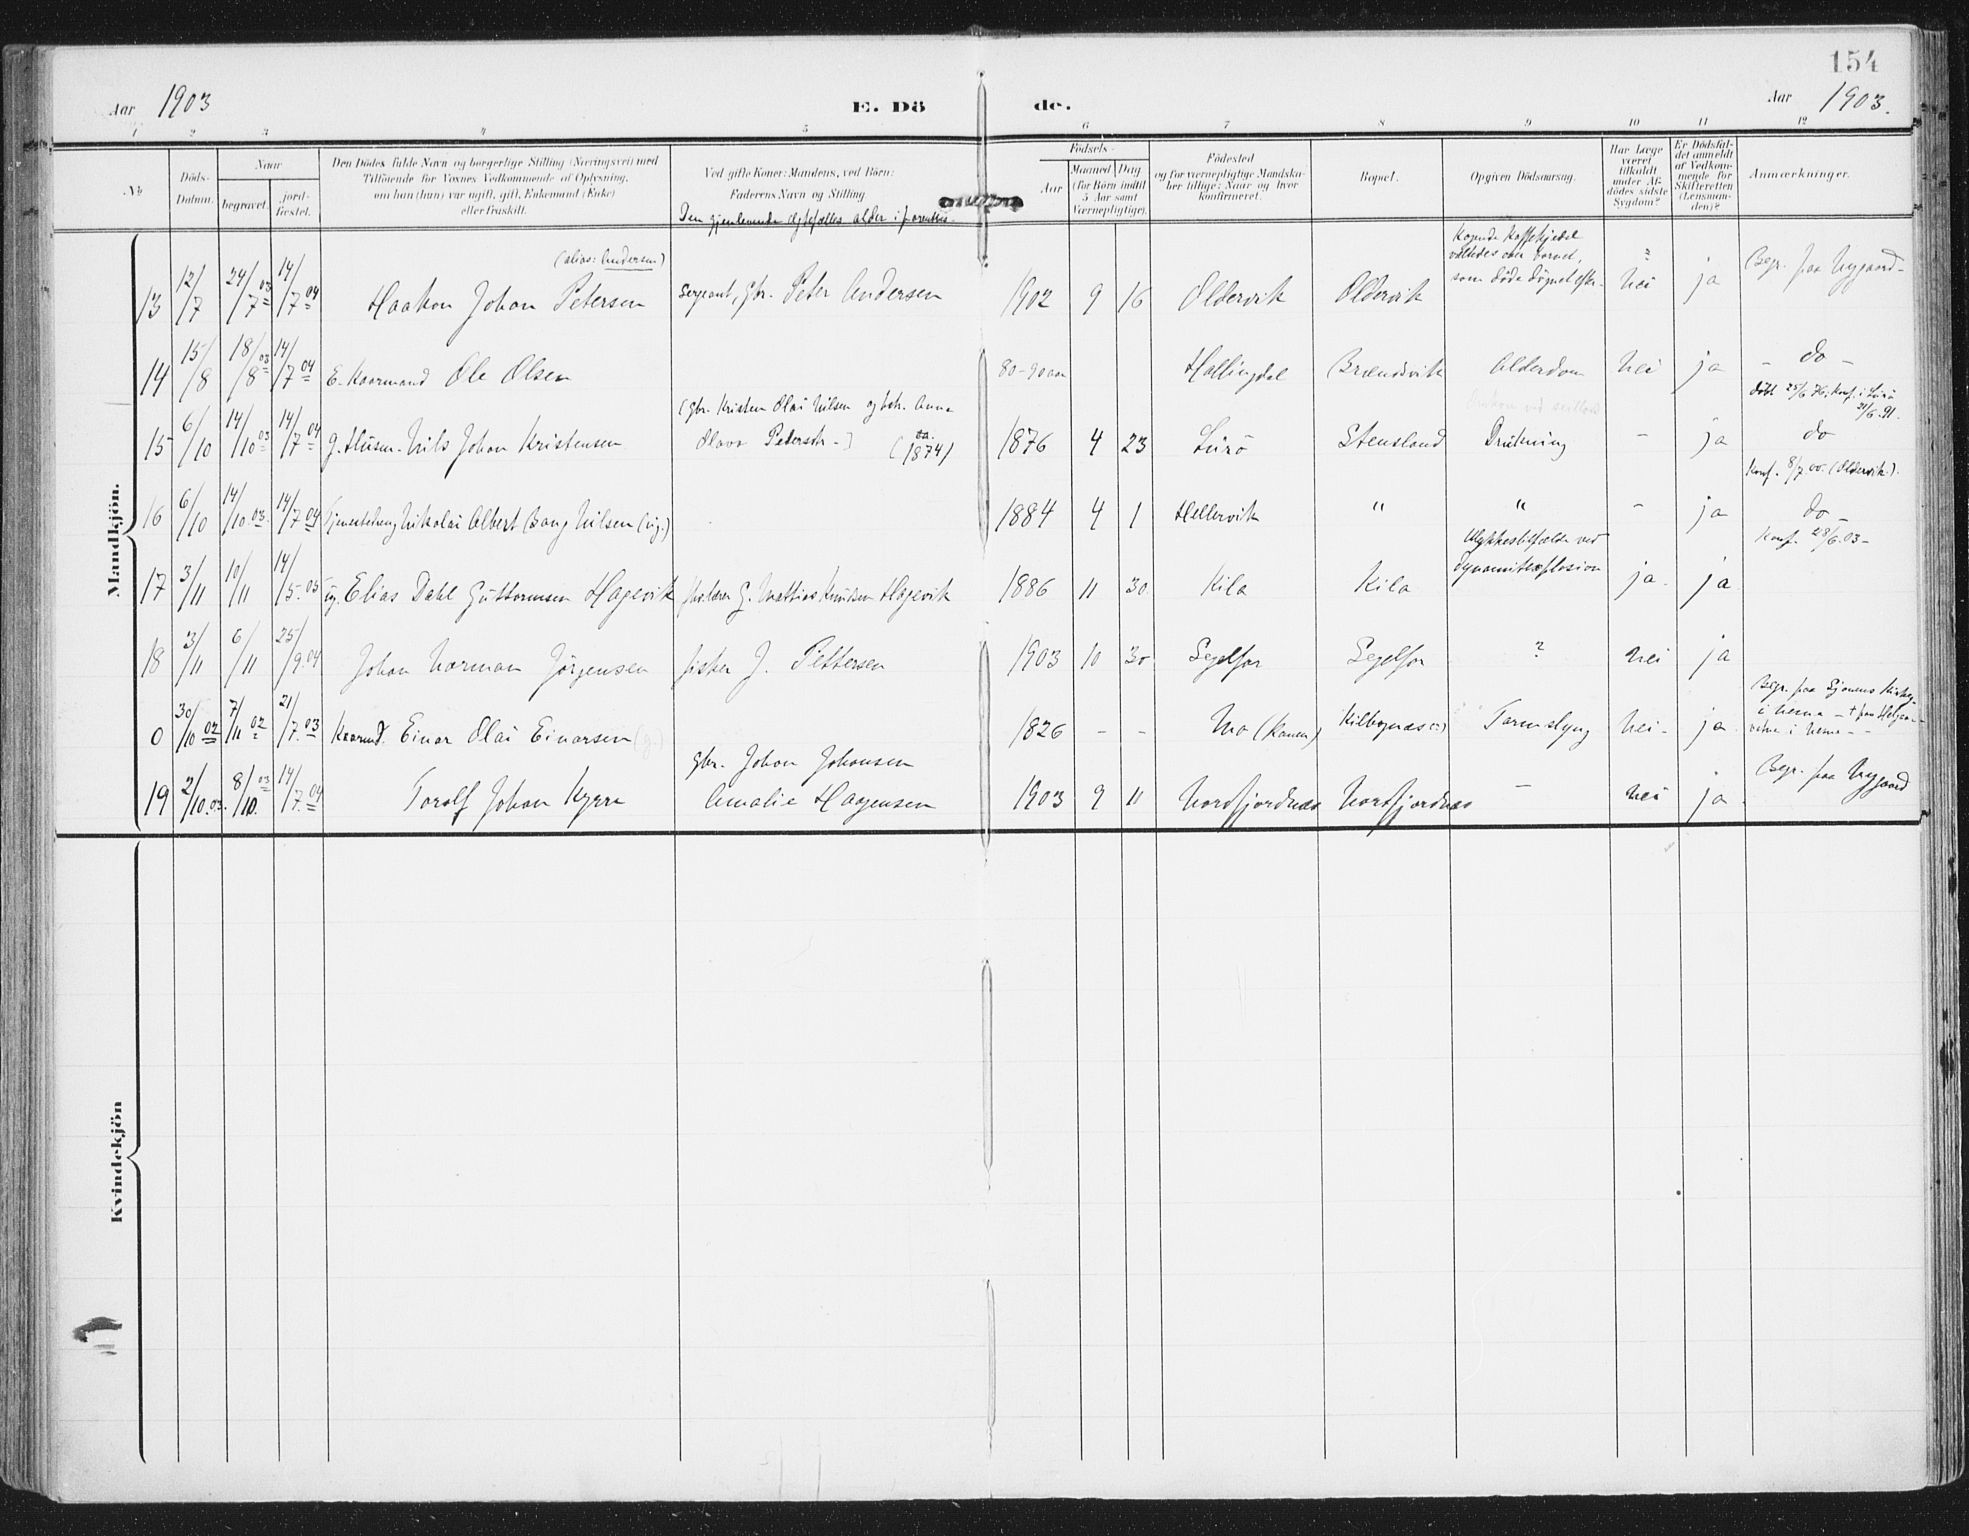 154
Aar 1903 E. Dö de. Aar 1903.
1 2 3 4 5 6 7 8 9 10 11 12
No
Döds-Datum.
Naar
begravet.
jord-fæstet.
Den Dödes fulde Navn og borgerlige Stilling (Næringsvei) med
Tilföiende for Voxnes Vedkommende af Oplysning,
om han (hun) var ugift, gift, Enkemand (Enke)
eller fraskilt.
Ved gifte Koner: Mandens, ved Börn:
Faderens Navn og Stilling
Den gjenlevende Ægtefælles alder i parenthes.
Födsels-
Aar
Maaned Dag
(for Börn indtil
5 Aar samt
Værnepligtige).
Födested
og for værnepligtige Mandska-
ber tillige: Naar og hvor
konfirmeret.
Bopæl.
Opgiven Dödsaarsag.
Har Læge
været
tilkaldt
under Af-
dödes sidste
Sygdom?
Er Dödsfal-
det anmeldt
af Vedkom-
mende for
Skifteretten
(Lensman-
den)?
Anmærkninger.
Mandkjön.
(alias: Andersen)
Kogende Kaffekjedel
væltedes over barnet,
som døde døgnet efter.
13 12/7 24/7 03 14/7 04 Haakon Johan Petersen Sergeant, gbr. Peter Andersen 1902 9 16 Oldervik Oldervik ? nei ja Begr. paa Nygaard-
14 15/8 18/8 03 14/7 04 E. Kaarmand Ole Olsen 80-90 aar Hallingdal Brændsvik Alderdom nei ja - do -
(gbr. Kristen Olai Nilsen og hstr. Anna
Olava Petersdtr.] (ca. 1874)
født 25/6 76, konf. i Lurö
21/6 91.
15 6/10 14/10 03 14/7 04 g. Husm. Nils Johan Kristensen 1876 4 23 Lurö Stensland Drukning - ja do
Konf. 8/7 00. (Oldervik).
16 6/10 14/10 03. 14/7 04 Tjenestedreng Nikolai Albert Bang Nilsen (ug.) 1884 4 1 Hellervik " " - ja do -
Konf. 28/6 03-
Ulykkestilfælde ved
dynamitexplosion
17 3/11 10/11 14/5 05 ug. Elias Dahl Guttormsen Hagevik G. Mathias Knudsen Hagevik 1886 11 30 Kila Kila ja. ja
18 3/11 6/11 25/9 04 Johan Norman Jörgensen fisker J. Pettersen 1903 10 30 Segelfor Segelfor ? nei ja
0 30/10 02 7/11 02 21/7. 03 Kaarmd. Einar Olai Einarsen (g.) 1826 - - Mo (Ranen) Tarmslyng nei- ja.
gbr. Johan Johansen
19 2/10. 03. 8/10. 03 14/7. 04 Torolf Johan Kyrre Amalie Haagensen 1903 9 11 Nordfjordnæs Nordfjordnæs - nei ja. Begr. paa Nygaard
Kvindekjön